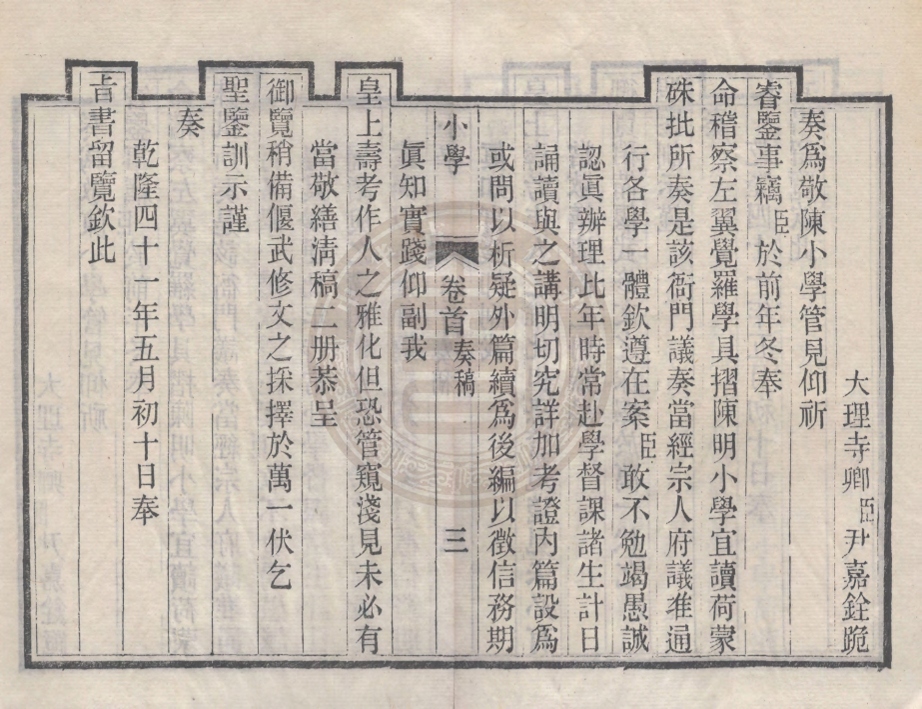 大理寺卿臣尹嘉銓跪
奏爲敬陳小學管見仰祈
睿鑒事竊臣於前年冬奉
命稽察左翼覺羅學具摺陳明小學宜讀荷蒙
硃批所奏是該衙門議奏當經宗人府議准通
行各學一體欽遵在案臣敢不勉竭愚誠
認眞辦理比年時常赴學督課諸生計日
誦讀與之講明切究詳加考證內篇設爲
或問以析疑外篇續爲後編以徵信務期
小學 卷首 奏稿 三
眞知實踐仰副我
皇上壽考作人之雅化但恐管窺淺見未必有
當敬繕淸稿二册恭呈
御覽稍備偃武修文之採擇於萬一伏乞
聖鑒訓示謹
奏
乾隆四十一年五月初十日奉
旨書留覽欽此